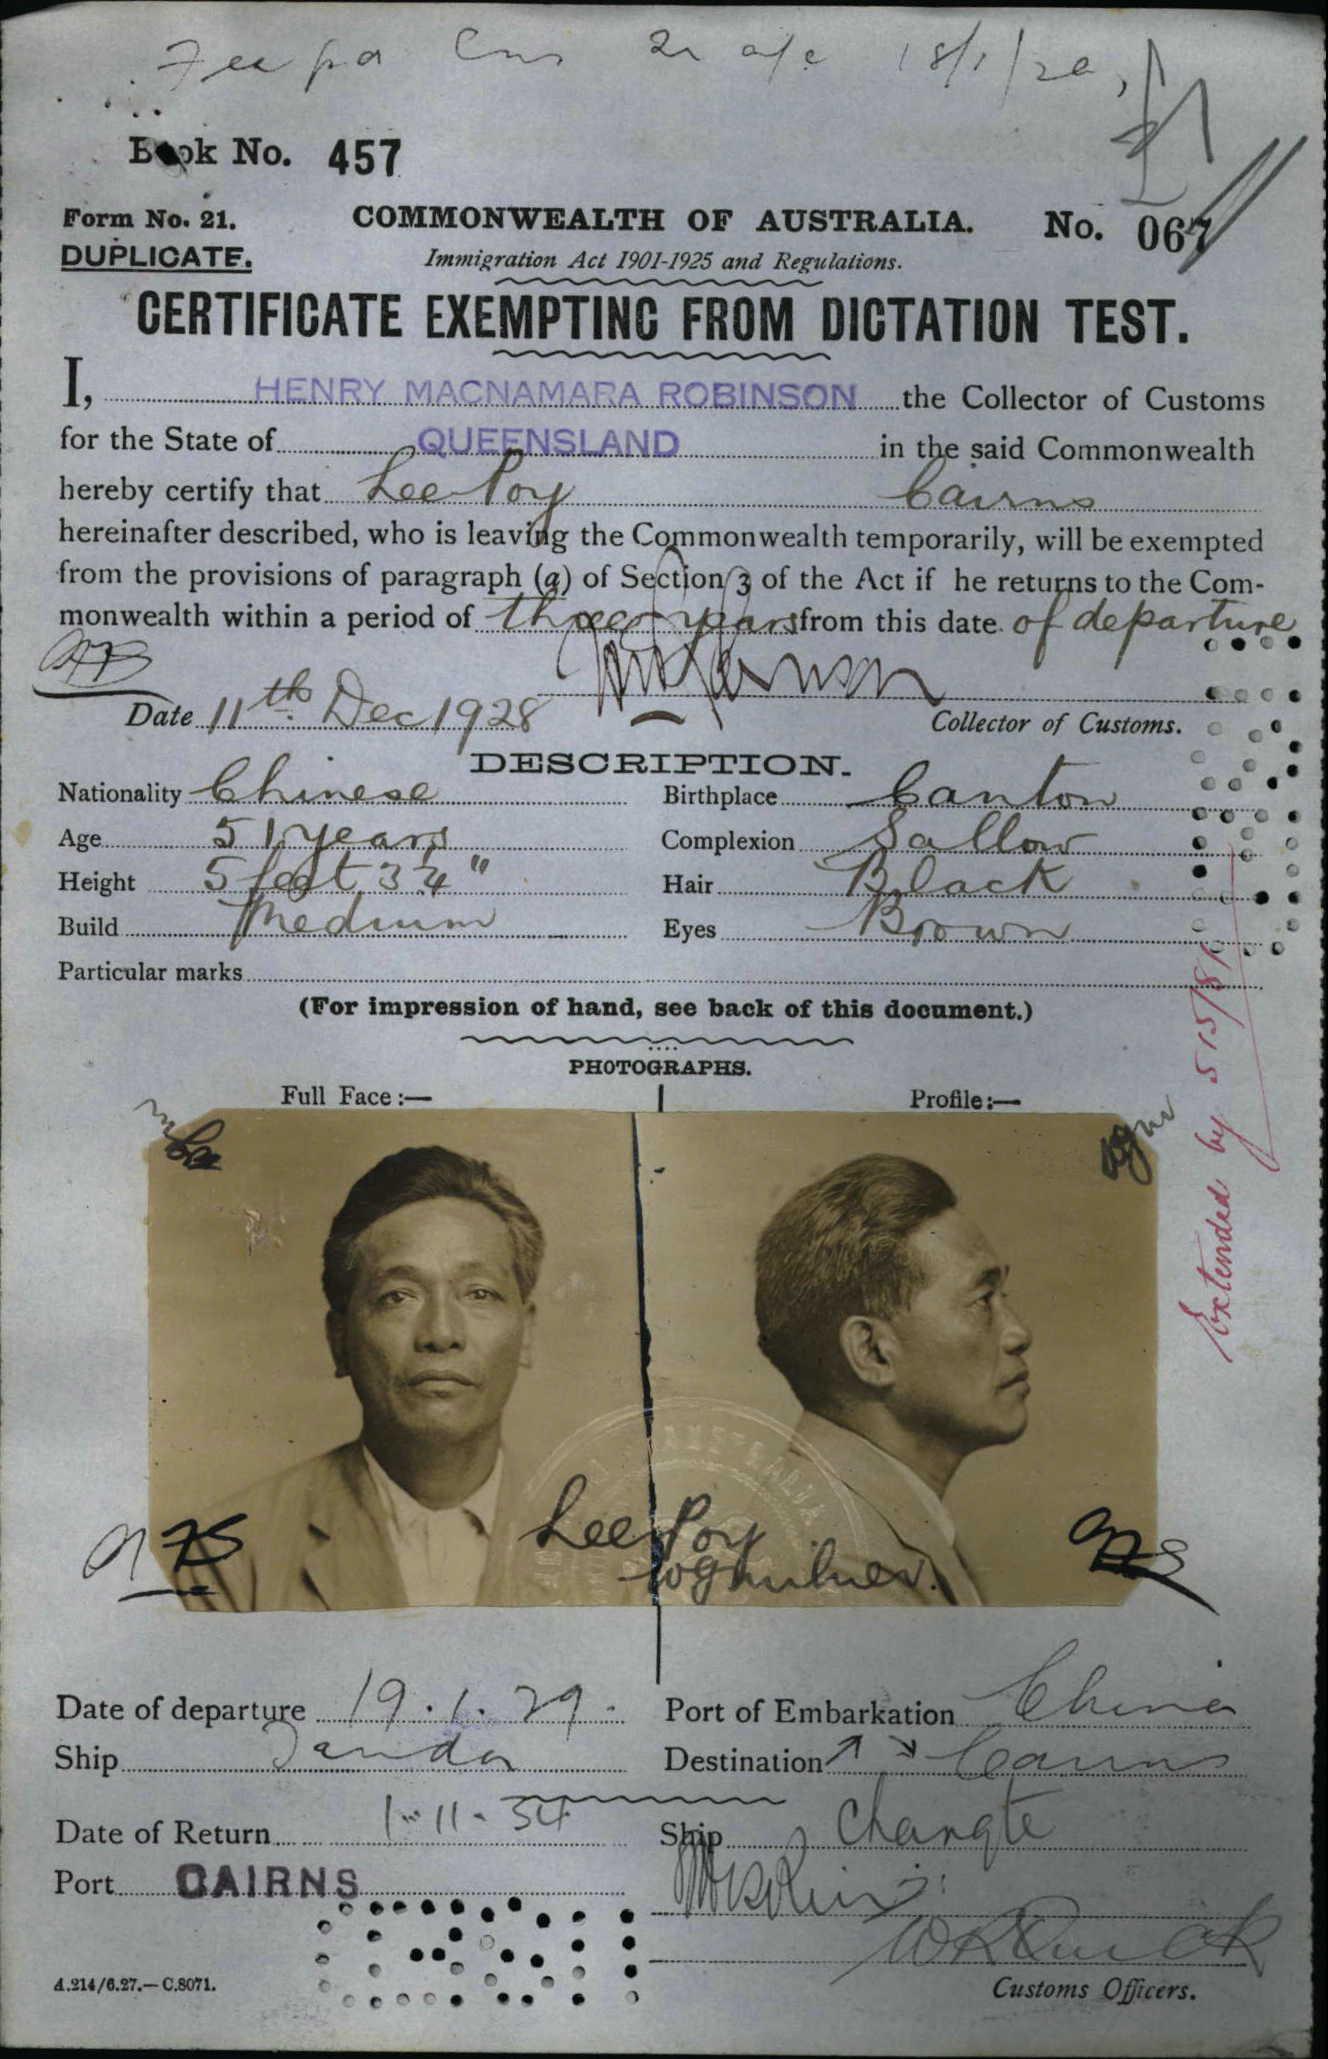 Fee pd Cns 2r a/c 18/1/29,
£1
Book No. 457
Form No. 21.
COMMONWEALTH OF AUSTRALIA.
No. 067
DUPLICATE.
Immigration Act 1901-1925 and Regulations.
CERTIFICATE EXEMPTING FROM DICTATION TEST.
I, HENRY MACNAMARA ROBINSON the Collector of Customs
for the State of QUEENSLAND in the said Commonwealth
hereby certify that Lee Poy Cairns
hereinafter described, who is leaving the Commonwealth temporarily, will be exempted
from the provisions of paragraph (a) of Section 3 of the Act if he returns to the Com-
monwealth within a period of three years from this date of departure
Date 11th Dec 1928
Collector of Customs.
DESCRIPTION.
Nationality Chinese Birthplace Canton
Age 51 years Complexion Sallow
Height 5 feet 3¼" Hair Black
Build Medium Eyes Brown
Particular marks
(For impression of hand, see back of this document.)
PHOTOGRAPHS.
Full Face:— Profile:—
Extended by 515/81
Lee Poy
W G Milner.
Date of departure 19.1.29. Port of Embarkation China
Ship Tanda Destination Cairns
Date of Return 1-11-34 Ship Changte
Port CAIRNS
A.214/6.27.—C.8071.
Customs Officers.